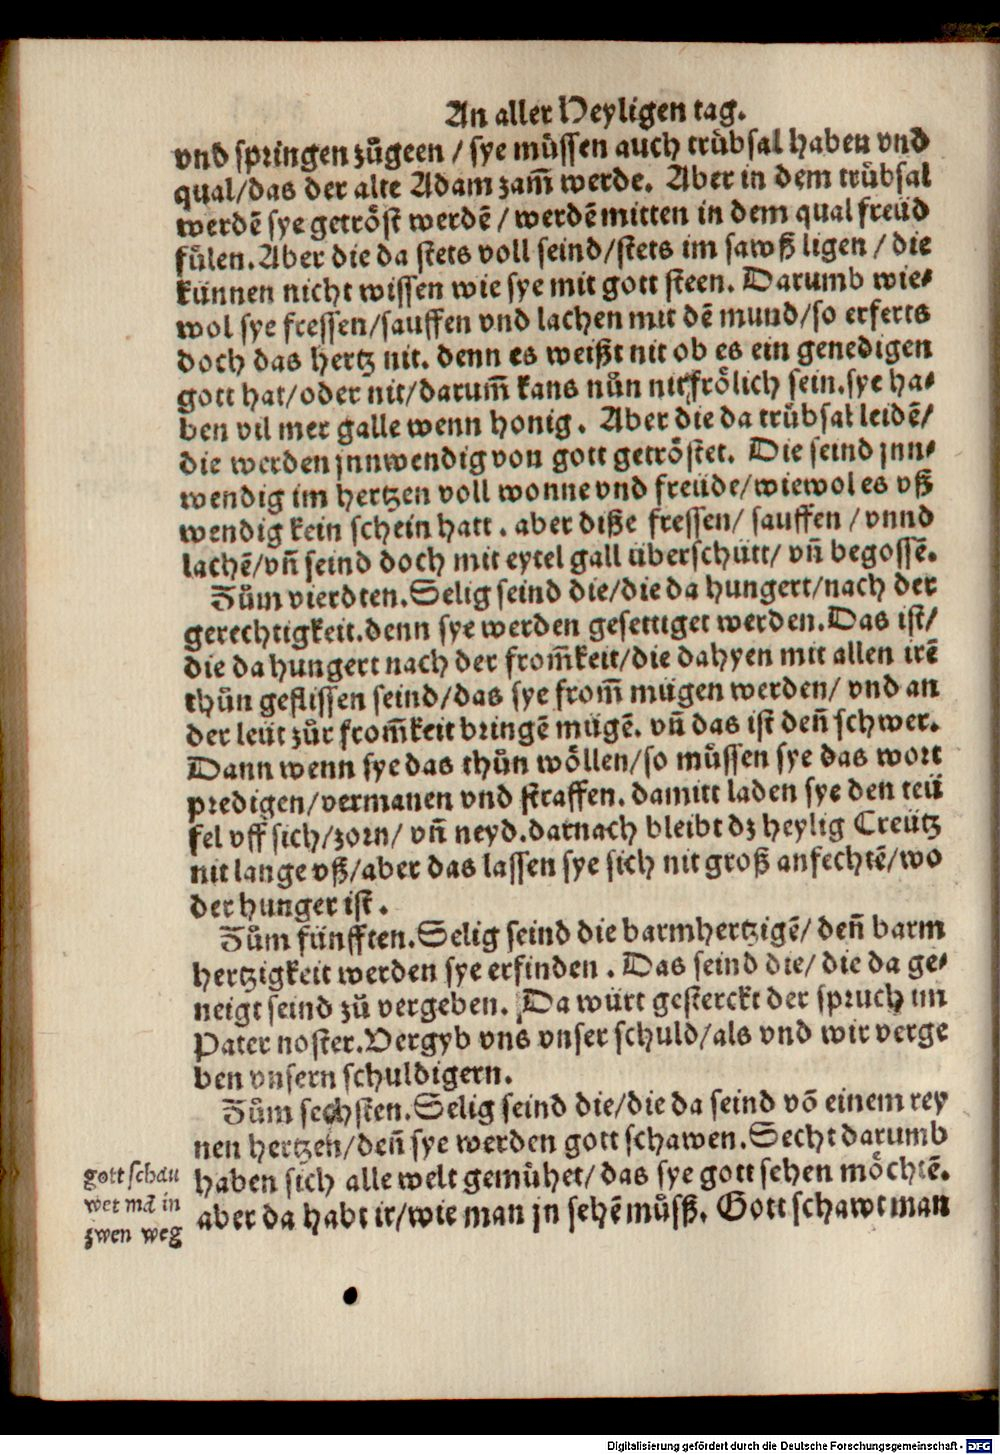 An aller Heyligen tag.
vnd springen zůgeen / sye můssen auch trůbsal haben vnd
qual/das der alte Adam zam̃ werde. Aber in dem trůbsal
werdẽ sye getröst werdẽ / werdẽ mitten in dem qual freüd
fůlen. Aber die da stets voll seind/stets im sawß ligen / die
künnen nicht wissen wie sye mit gott steen. Darumb wie⸗
wol sye fressen/sauffen vnd lachen mit dẽ mund/so erferts
doch das hertz nit. denn es weißt nit ob es ein genedigen
gott hat/oder nit/darum̃ kans nůn nit frölich sein. sye ha⸗
ben vil mer galle wenn honig. Aber die da trůbsal leidẽ/
die werden jnnwendig von gott getröstet. Die seind jnn⸗
wendig im hertzen voll wonne vnd freüde/wiewol es vß
wendig kein schein hatt. aber diße fressen/ sauffen / vnnd
lachẽ/vñ seind doch mit eytel gall überschüt/ vñ begossẽ.
Zům vierdten. Selig seind die/die da hungert/nach der
gerechtigkeit. denn sye werden gesettiget werden. Das ist/
die da hungert nach der from̃keit/die dahyen mit allen irẽ
thůn geflissen seind/das sye from̃ mügen werden/ vnd an
der leüt zůr from̃keit bringẽ mügẽ. vñ das ist deñ schwer.
Dann wenn sye das thůn wöllen/so můssen sye das wort
predigen/vermanen vnd straffen. damitt laden sye den teü
fel vff sich/zorn/ vñ neyd. darnach bleibt dz heylig Creütz
nit lange vß/aber das lassen sye sich nit groß anfechtẽ/wo
der hunger ist.
Zům fünfften. Selig seind die barmhertzigẽ/ deñ barm
hertzigkeit werden sye erfinden. Das seind die/ die da ge⸗
neigt seind zů vergeben. Da würt gesterckt der spruch im
Pater noster. Vergyb vns vnser schuld/als vnd wir verge
ben vnsern schuldigern.
Zům sechsten. Selig seind die/die da seind võ einem rey
nen hertzen/deñ sye werden gott schawen. Secht darumb
haben sich alle welt gemůhet/ das sye gott sehen möchtẽ.
aber da habt ir/wie man jn sehẽ můsß. Gott schawt man
gott schau
wet mã in
zwen weg
Digitalisierung gefördert durch die Deutsche Forschungsgemeinschaft - DFG